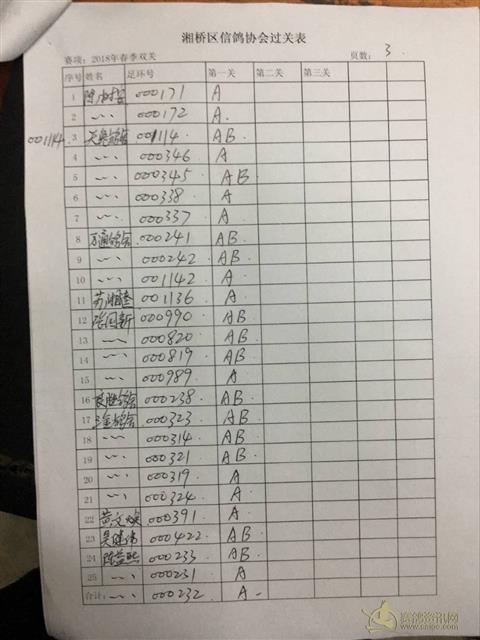 湘桥区信鸽协会过关表
赛项：2018年春季双关 页数： 3
序号 姓名 足环号 第一关 第二关 第三关
1 000171 A
2 〃 000172 A
001114 3 001114 AB
4 〃 000346 A
5 〃 000345 AB
6 〃 000338 A
7 〃 000337 A
8 万通鸽舍 000241 AB
9 〃 000242 AB
10 〃 001142 A
11 001136 A
12 张国新 000990 AB
13 〃 000820 AB
14 〃 000819 AB
15 〃 000989 A
16 鸽舍 000238 AB
17 鸽舍 000323 AB
18 〃 000314 AB
19 〃 000321 AB
20 〃 000319 A
21 〃 000324 A
22 黄文焕 000391 A
23 吴健伟 000422 AB
24 陈益熙 000233 AB
25 〃 000231 A
合计： 〃 000232 A
赛鸽资讯网